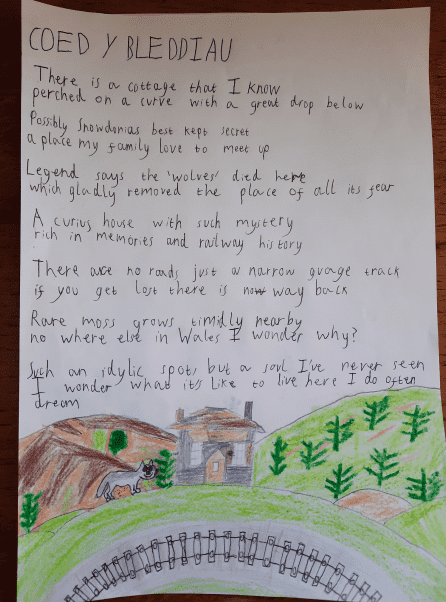 COED Y BLEDDIAU
There is a cottage that I know
perched on a curve with a great drop below
Possibly Snowdonias best kept secret
a place my family love to meet up
Legend says the 'wolves' died here
which gladly removed the place of all its fear
A curius house with such mystery
rich in memories and railway history
There are no roads just a narrow guage track
if you get lost there is way back
Rare moss grows timidly nearby
no where else in Wales I wonder why?
Such an idylic spot, but a soul I've never seen
I wonder what it's like to live here I do often
dream